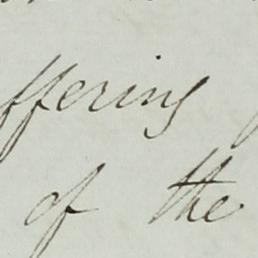 ffering
of the